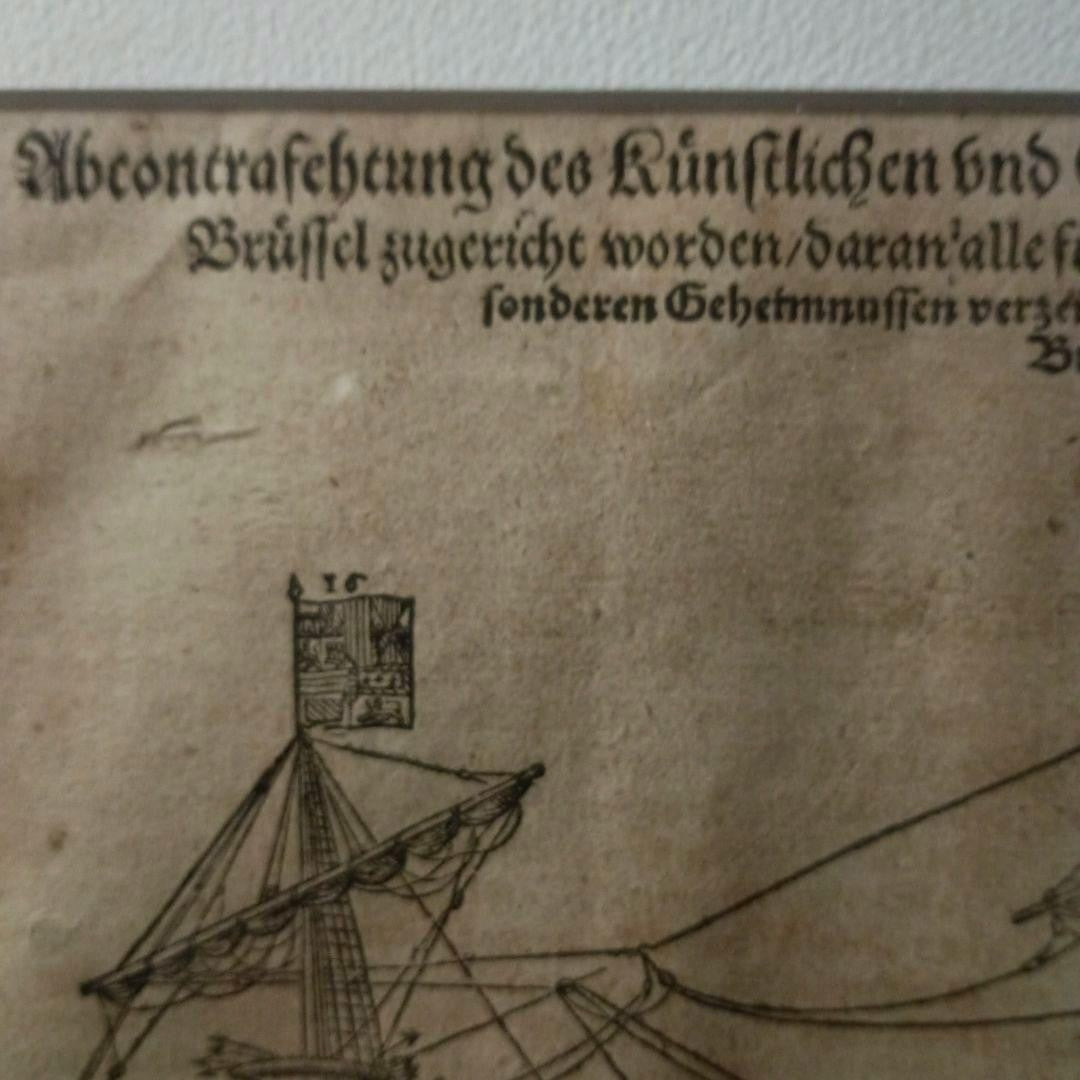 Abcontrafehtung des Künstlichen vnd
Brüssel zugericht worden/daran alle
sonderen Geheimnussen
16